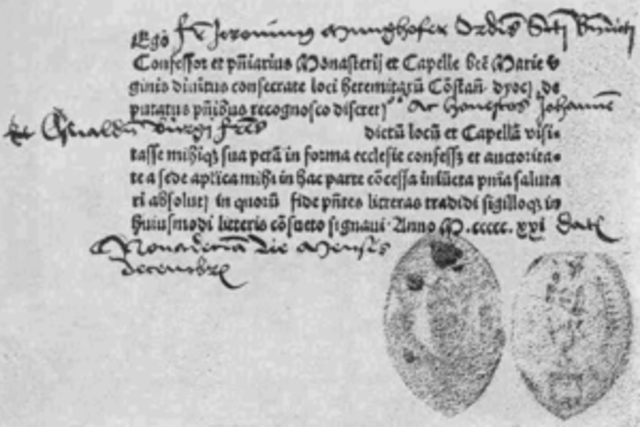 Ego fr Jeronimus Munghofer Ordis Scti Bndicti
Confessor et pn̄iarius Monasterij et Capelle btē Marie v
ginis diuitus consecrate loci heremitarū Cōstan̄· dyoc̄· de
putatus pn̄ibus recognosco discret Ac honestos Johannē
et Oswaldū fres dictū locū et Capellā visi-
tasse mihiqȝ sua pctā in forma ecclesie confessȝ et auctorita-
te a sede aplica mihi in hac parte cōcessa iniūcta pnīa saluta
ri absoluț in quorū fide pn̄tes litteras tradidi sigilloqȝ in
huiusmodi litteris cōsueto signaui· Anno M.ccccc.xxi dat
die Mensis
decembr